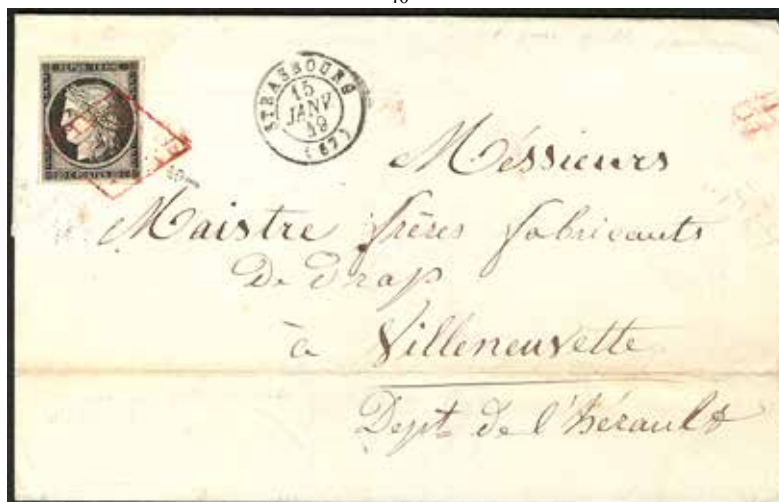 REPUB. FRANC.
STRASBOURG
15
JANV
49
(67)
Méssieurs
Maistre frères fabricants
De Drap
à Villeneuvette
Dept. de l'hérault